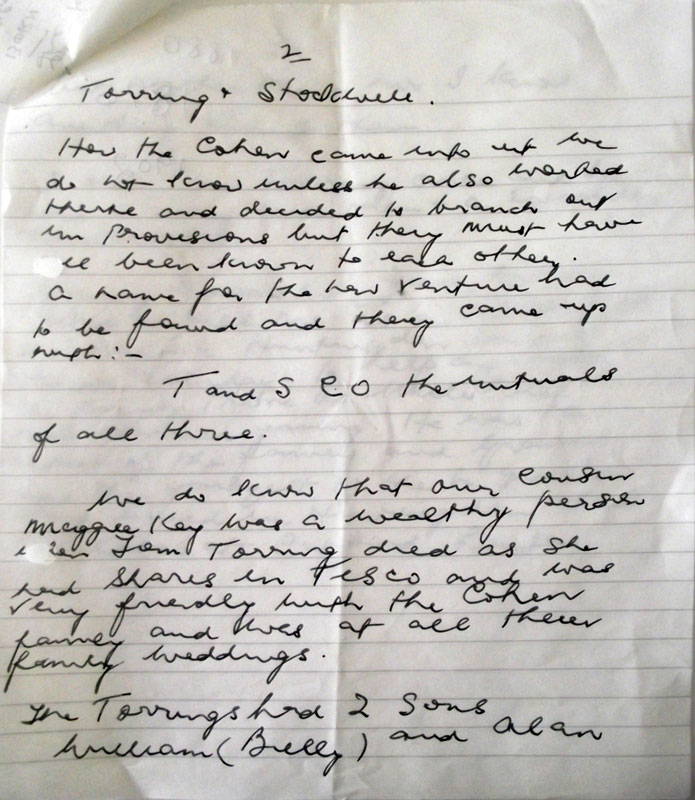 2
Torring + Stockwell.
How the Cohen came into it we
do not know unless he also worked
there and decided to branch out
in Provisions but they must have
been known to each other.
A name for the new venture had
to be found and they came up
with:-
T and S C O the initials
of all three.
We do know that our Cousin
Maggie Key was a wealthy person
when Tom Torring died as she
had shares in Tesco and was
very friendly with the Cohen
family and was at all their
family weddings.
The Torrings had 2 Sons
William (Billy) and Alan